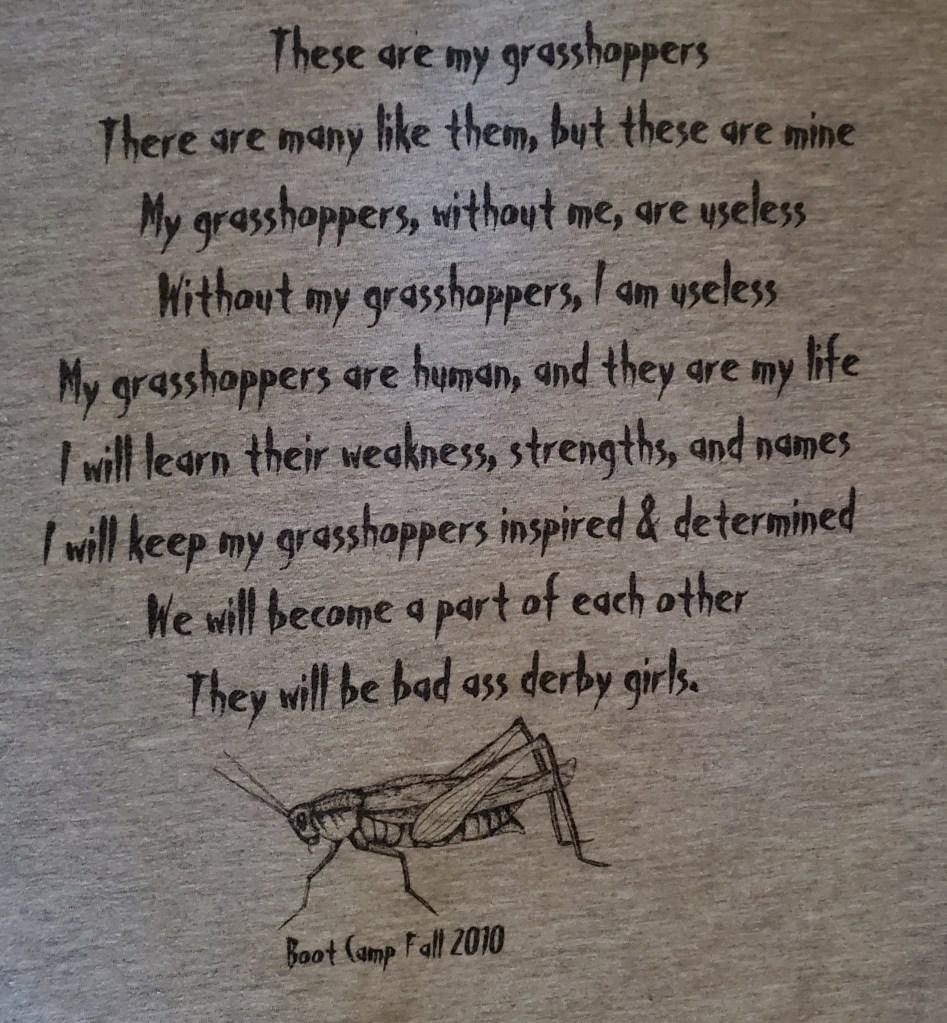 These are my grasshoppers
There are many like them, but these are mine
My grasshoppers, without me, are useless
Without my grasshoppers, I am useless
My grasshoppers are human, and they are my life
I will learn their weakness, strengths, and names
I will keep my grasshoppers inspired & determined
We will become a part of each other
They will be bad ass derby girls.
Boot Camp Fall 2010